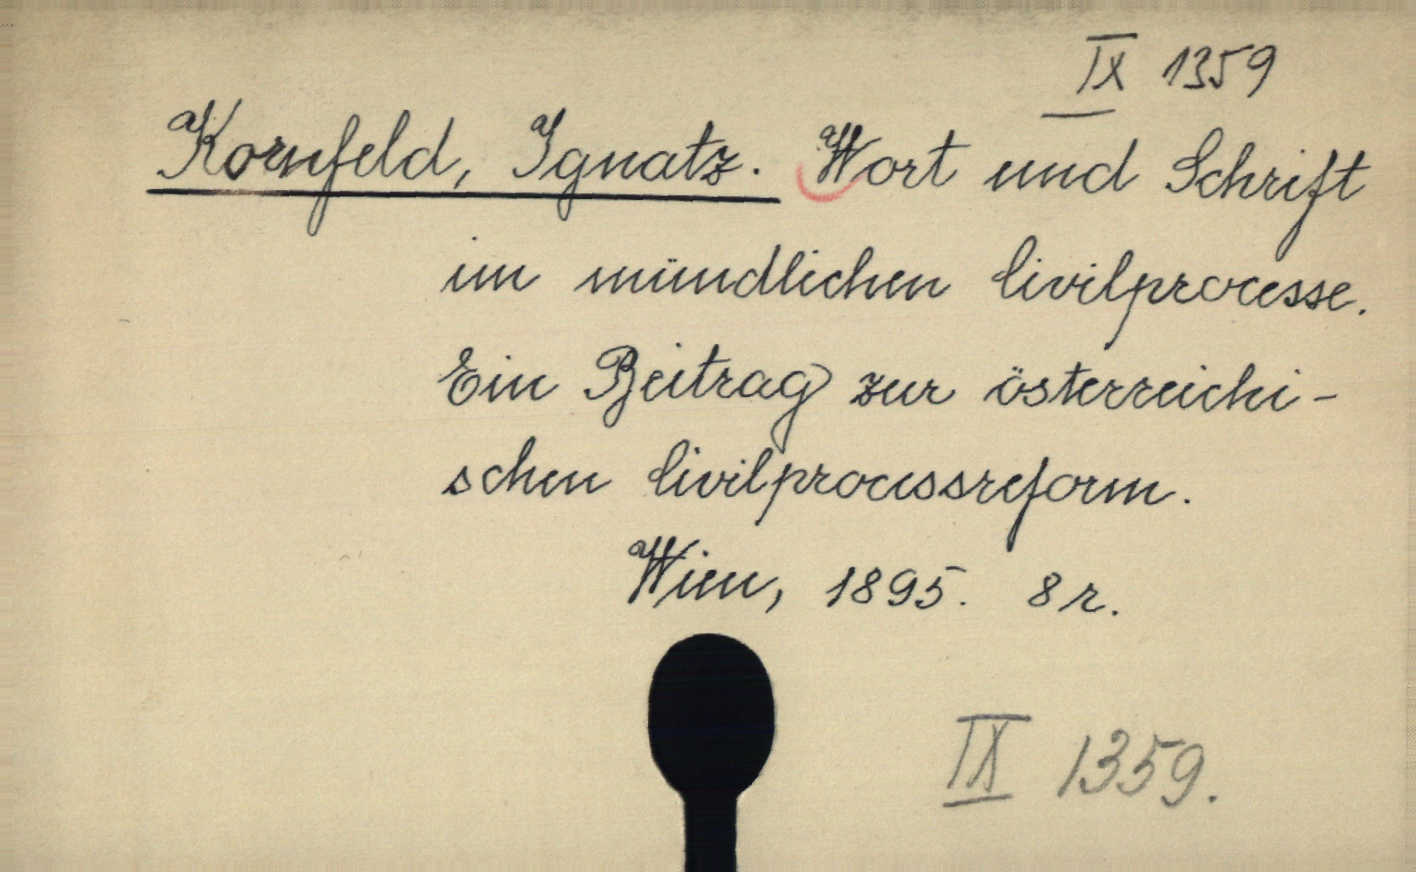 IX 1359
Kornfeld, Ignatz. Wort und Schrift
im mündlichen Civilprocesse.
Ein Beitrag zur österreichi-
schen Civilprocessreform.
Wien, 1895. 8r.
IX 1359.